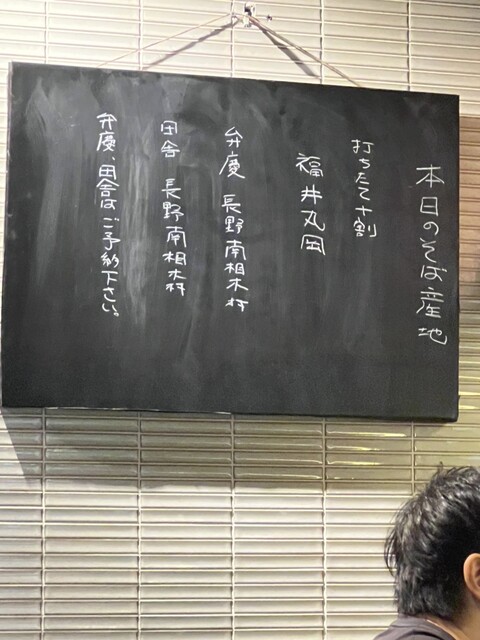 本日のそば産地
打ちたて十割
福井丸岡
弁慶 長野南相木村
田舎 長野南相木村
弁慶、田舎はご予約下さい。